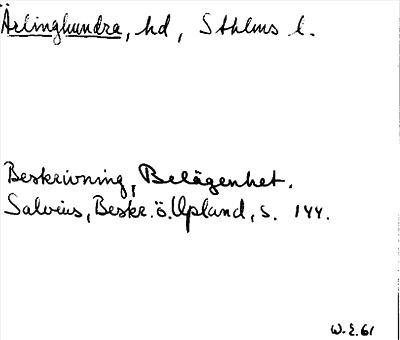 Ärlinghundra, hd, Sthlms l.
Beskrivning, Belägenhet.
Salvius, Beskr. ö. Upland, s. 144.
W.E. 61